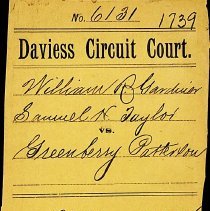 No. 6131 1739
Daviess Circuit Court.
William R Gardner
Samuel H Taylor
vs.
Greenberry Patterson